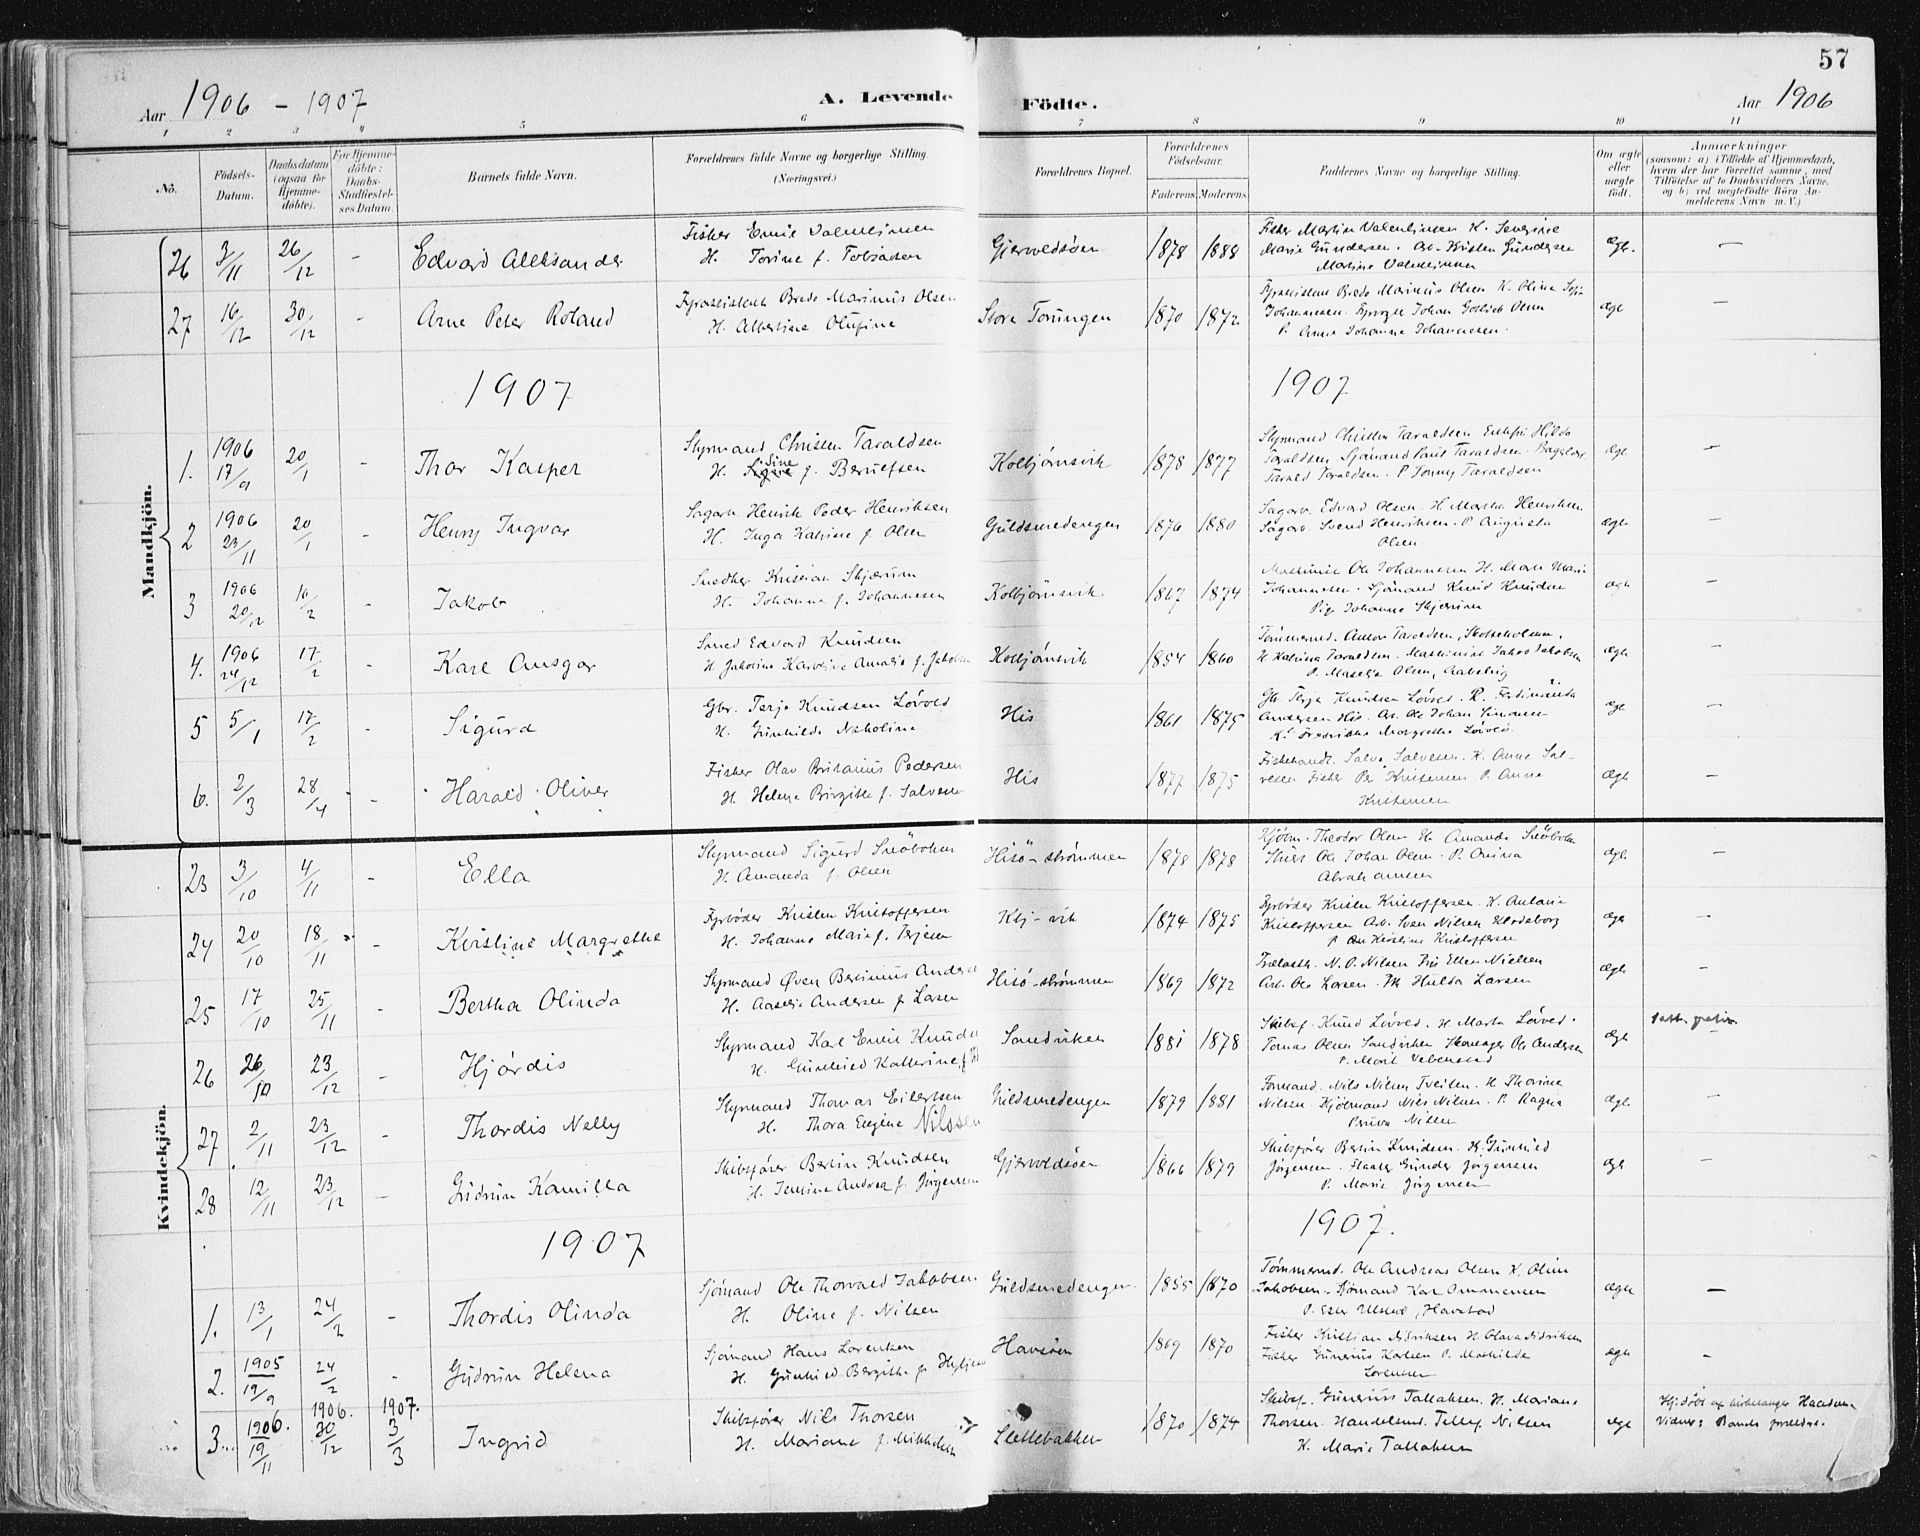 57
Aar 1906 - 1907
A. Levende Födte.
Aar 1906
1 2 3 4 5 6 7 8 9 10 11
No.
Födsels-Datum.
Daabsdatum (ogsaa for Hjemmedöbte).
For Hjemmedöbte: Daabs-Stadfæstelses Datum.
Barnets fulde Navn.
Forældrenes fulde Navne og borgerlige Stilling.
(Næringsvei.)
Forældrenes Bopæl.
Forældrenes Födselsaar.
Faderens. Moderens.
Faddernes Navne og borgerlige Stilling.
Om ægte eller uægte födt.
Anmærkninger
(saasom: a) i Tilfælde af Hjemmedaab,
hvem der har forrettet samme, med
Tilföielse af to Daabsvidners Navne,
og b) ved uægtefödte Börn Anmelderens Navn m. V.)
Mandkjön.
26 3/11 26/12 - Edvard Aleksander
Fisher Emil Valentinsen
H. Torine f. Tobiasen
Gjervoldsöen 1878 1888
Fisher Martin Valentinsen K. Severine
Marie Gundersen. Arb. Kristen Gundersen
Martine Valentinsen
ægte. -
27 16/12 30/12 - Arne Peter Roland
Fyrassistent Brede Marinus Olsen
H. Albertine Olufine
Store Torungen 1870 1872
Fyrassistent Brede Marinus Olsen K. Oline Sofie
Johannesen. Fyrvogter Johan Gotlieb Olsen
P. Anna Johanne Johannesen.
ægte -
1907
1907
1. 1906 17/9 20/1 - Thor Kasper
Styrmand Christen Taraldsen
H. Sine f. Berulfsen
Kolbjörnsvik 1878 1877
Styrmand Christen Taraldsen Enkefru Hilda
Taraldsen Sjömand Paul Taraldsen.
Tarald Taraldsen. P Tonny Taraldsen
ægte -
2 1906 23/11 20/1 - Henry Ingvar
Sagarb. Henrik Peder Henriksen
H. Inga Katrine f. Olsen
Guldsmedengen 1876 1880
Sagarb. Edvard Olsen. H Martha Henriksen
Sagarb. Svend Henriksen. P. Augusta
Olsen
ægte -
3 1906 20/12 10/2 - Jakob
Snedker Kristian Skjærum
H. Johanna f. Johannesen
Kolbjörnsvik. 1867 1874
Maskinist Ole Johannesen H. Maren Marie
Johannesen. Sjömand Knud Knudsen
Pige Johanne Skjærum
ægte -
4. 1906 24/12 17/2 - Karl Ansgar
Smed Edvard Knudsen
H Jakobine Karoline Amalie f. Jakobsen
Kolbjörnsvik 1854 1860
Tömmermd. Anton Taraldsen,
H Katrine Taraldsen. Maskinist Jakob Jakobsen
P. Maselia Olsen,
ægte -
5 5/1 17/2 - Sigurd
Gbr. Terje Knudsen Lövold
H. Gunhilda Nikoline
His 1861 1875
Gbr Terje Knudsen Lövold. K. Ferdinanda
Andersen His. Arb. Ole Johan Simonsen
K. Fredrikke Margrethe Lövold.
ægte -
6. 2/3 28/4 - Harald Oliver
Fisker Olav Britanius Pedersen
H. Helene Birgitte f. Salvesen
His 1877 1875
Fiskehandl. Salve Salvesen. K. Anne Salvesen
Fisker Per Kristensen P. Anna
Kristensen
ægte -
Kvindekjön.
23 3/10 4/11 - Ella
Styrmand Sigurd Snöbohm
H. Amanda f. Olsen
Hisö-strömmen 1878 1878
Kjöbm. Theodor Olsen H. Amanda Snöbohm
Ole Johan Olsen. P. Anina
Abrahamsen
ægte -
24 20/10 18/11 - Kirstine Margrethe
Fyrböder Kristen Kristoffersen
H. Johanne Marie f. Terjesen
Klbj-vik 1874 1875
Fyrböder Kristen Kristoffersen. K. Antonie
Kristoffersen Arb. Sven Nilsen Klodeborg
P. Kirstine Kristoffersen
ægte -
25 17/10 25/11 - Bertha Olinda
Styrmand Öven Bertinius Andersen
H. Aaselia Andersen f Larsen
Hisö-strömmen 1869 1872
Trælasth. N. O. Nilsen Fru Ellen Nielsen
Arb. Ole Larsen. Pk Hulda Larsen
ægte -
26 26/10 23/12 - Hjördis
Styrmand Karl Emil Knudsen
H. Gunhild Kathrine f.
Sandviken 1881 1878
Skibsf. Knud Lövold. H. Marta Lövold.
Tomas Olsen Sandviken Skomager Ole Andersen
P. Marit Vebenstad
ægte
27 2/11 23/12 - Thordis Nelly
Styrmand Thomas Eilertsen
H. Thora Eugine Nilssen
Guldsmedengen 1879 1881
Formand. Nils Nilsen Tveiten. H Thorine
Nilsen. Kjölmand Niels Nilsen. P. Ragna
Nilsen
ægte -
28 12/11 23/12 - Gudrun Kamilla
Skibsförer Bertin Knudsen
H. Jensine Andrea f. Jörgensen
Gjervoldsöen 1866 1879
Skibsförer Bertin Knudsen. K. Gunhild
Jörgensen. Gunder Jörgensen
P. Marie Jörgensen
ægte -
1907
1907.
1. 13/1 24/2 - Thordis Olinda
Sjömand Ole Thorvald Jakobsen
H. Oline f. Nilsen
Guldsmedengen. 1855 1870
Tömmermd. Ole Andreas Olsen K. Oline
Jakobsen. Sjömand Karl Ommensen
P. Havstad
ægte -
2. 1905 19/9 24/2 - Gudrun Helena
Sjömand Hans Lorentsen
H. Gunhild Bergithe f.
Havsöen 1869 1870
Fisker Kristian Didriksen H. Olava Didriksen
Fisher Gunerius Karlsen P. Mathilde
Lorentsen
ægte -
3. 1906. 19/11 1906. 30/12 1907. 3/3 Ingrid
Skibsförer Nils Thorsen
H. Mariane f. Mikkelsen
Slettebakken 1870 1874
Skibsf. Gunerius Tallaksen. H. Mariane
Thorsen. Handelsmd. Tellef Nilsen
K. Marie Tallaksen
ægte
Hj. döbt af kirkesanger
Vidner: Barnets forældre.